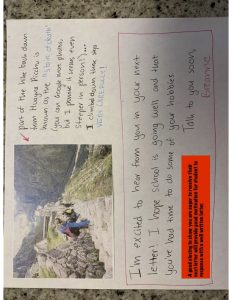 part of the hike back down
from Huayna Picchu is
known as the "stairs of death"
(you can google more photos,
but I promise it seems even
steeper in person!)...
I climbed down these steps
VERY CAREFULLY!
I'm excited to hear from you in your next
letter! I hope school is going well and that
you've had time to do some of your hobbies.
Talk to you soon,
Breanne
A good closing to show you are eager to receive their
next letter will provide good motivation for student to
respond with a well written letter.